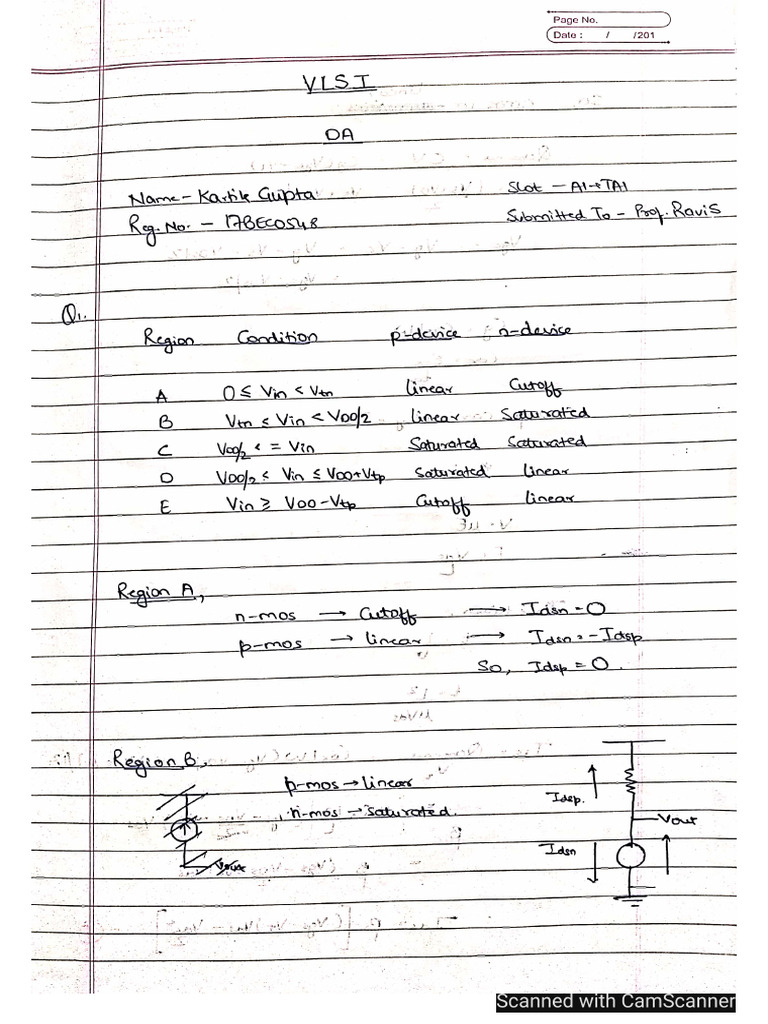 Page No.
Date : / /201
VLSI
DA
Name - Kartik Gupta Slot - A1+TA1
Reg. No. - 17BEC0548 Submitted To - Prof. Ravi S
Q1.
Region Condition p-device n-device
A 0 ≤ Vin < Vtn linear Cutoff
B Vtn ≤ Vin < VDD/2 linear Saturated
C VDD/2 < = Vin Saturated Saturated
D VDD/2 ≤ Vin ≤ VDD+Vtp Saturated linear
E Vin ≥ VDD - Vtp Cutoff linear
Region A,
n-mos → Cutoff → Idsn = 0
p-mos → linear → Idsn = -Idsp
So, Idsp = 0.
Region B,
p-mos → linear
n-mos → saturated.
Idsp.
Vout
Idsn
Scanned with CamScanner